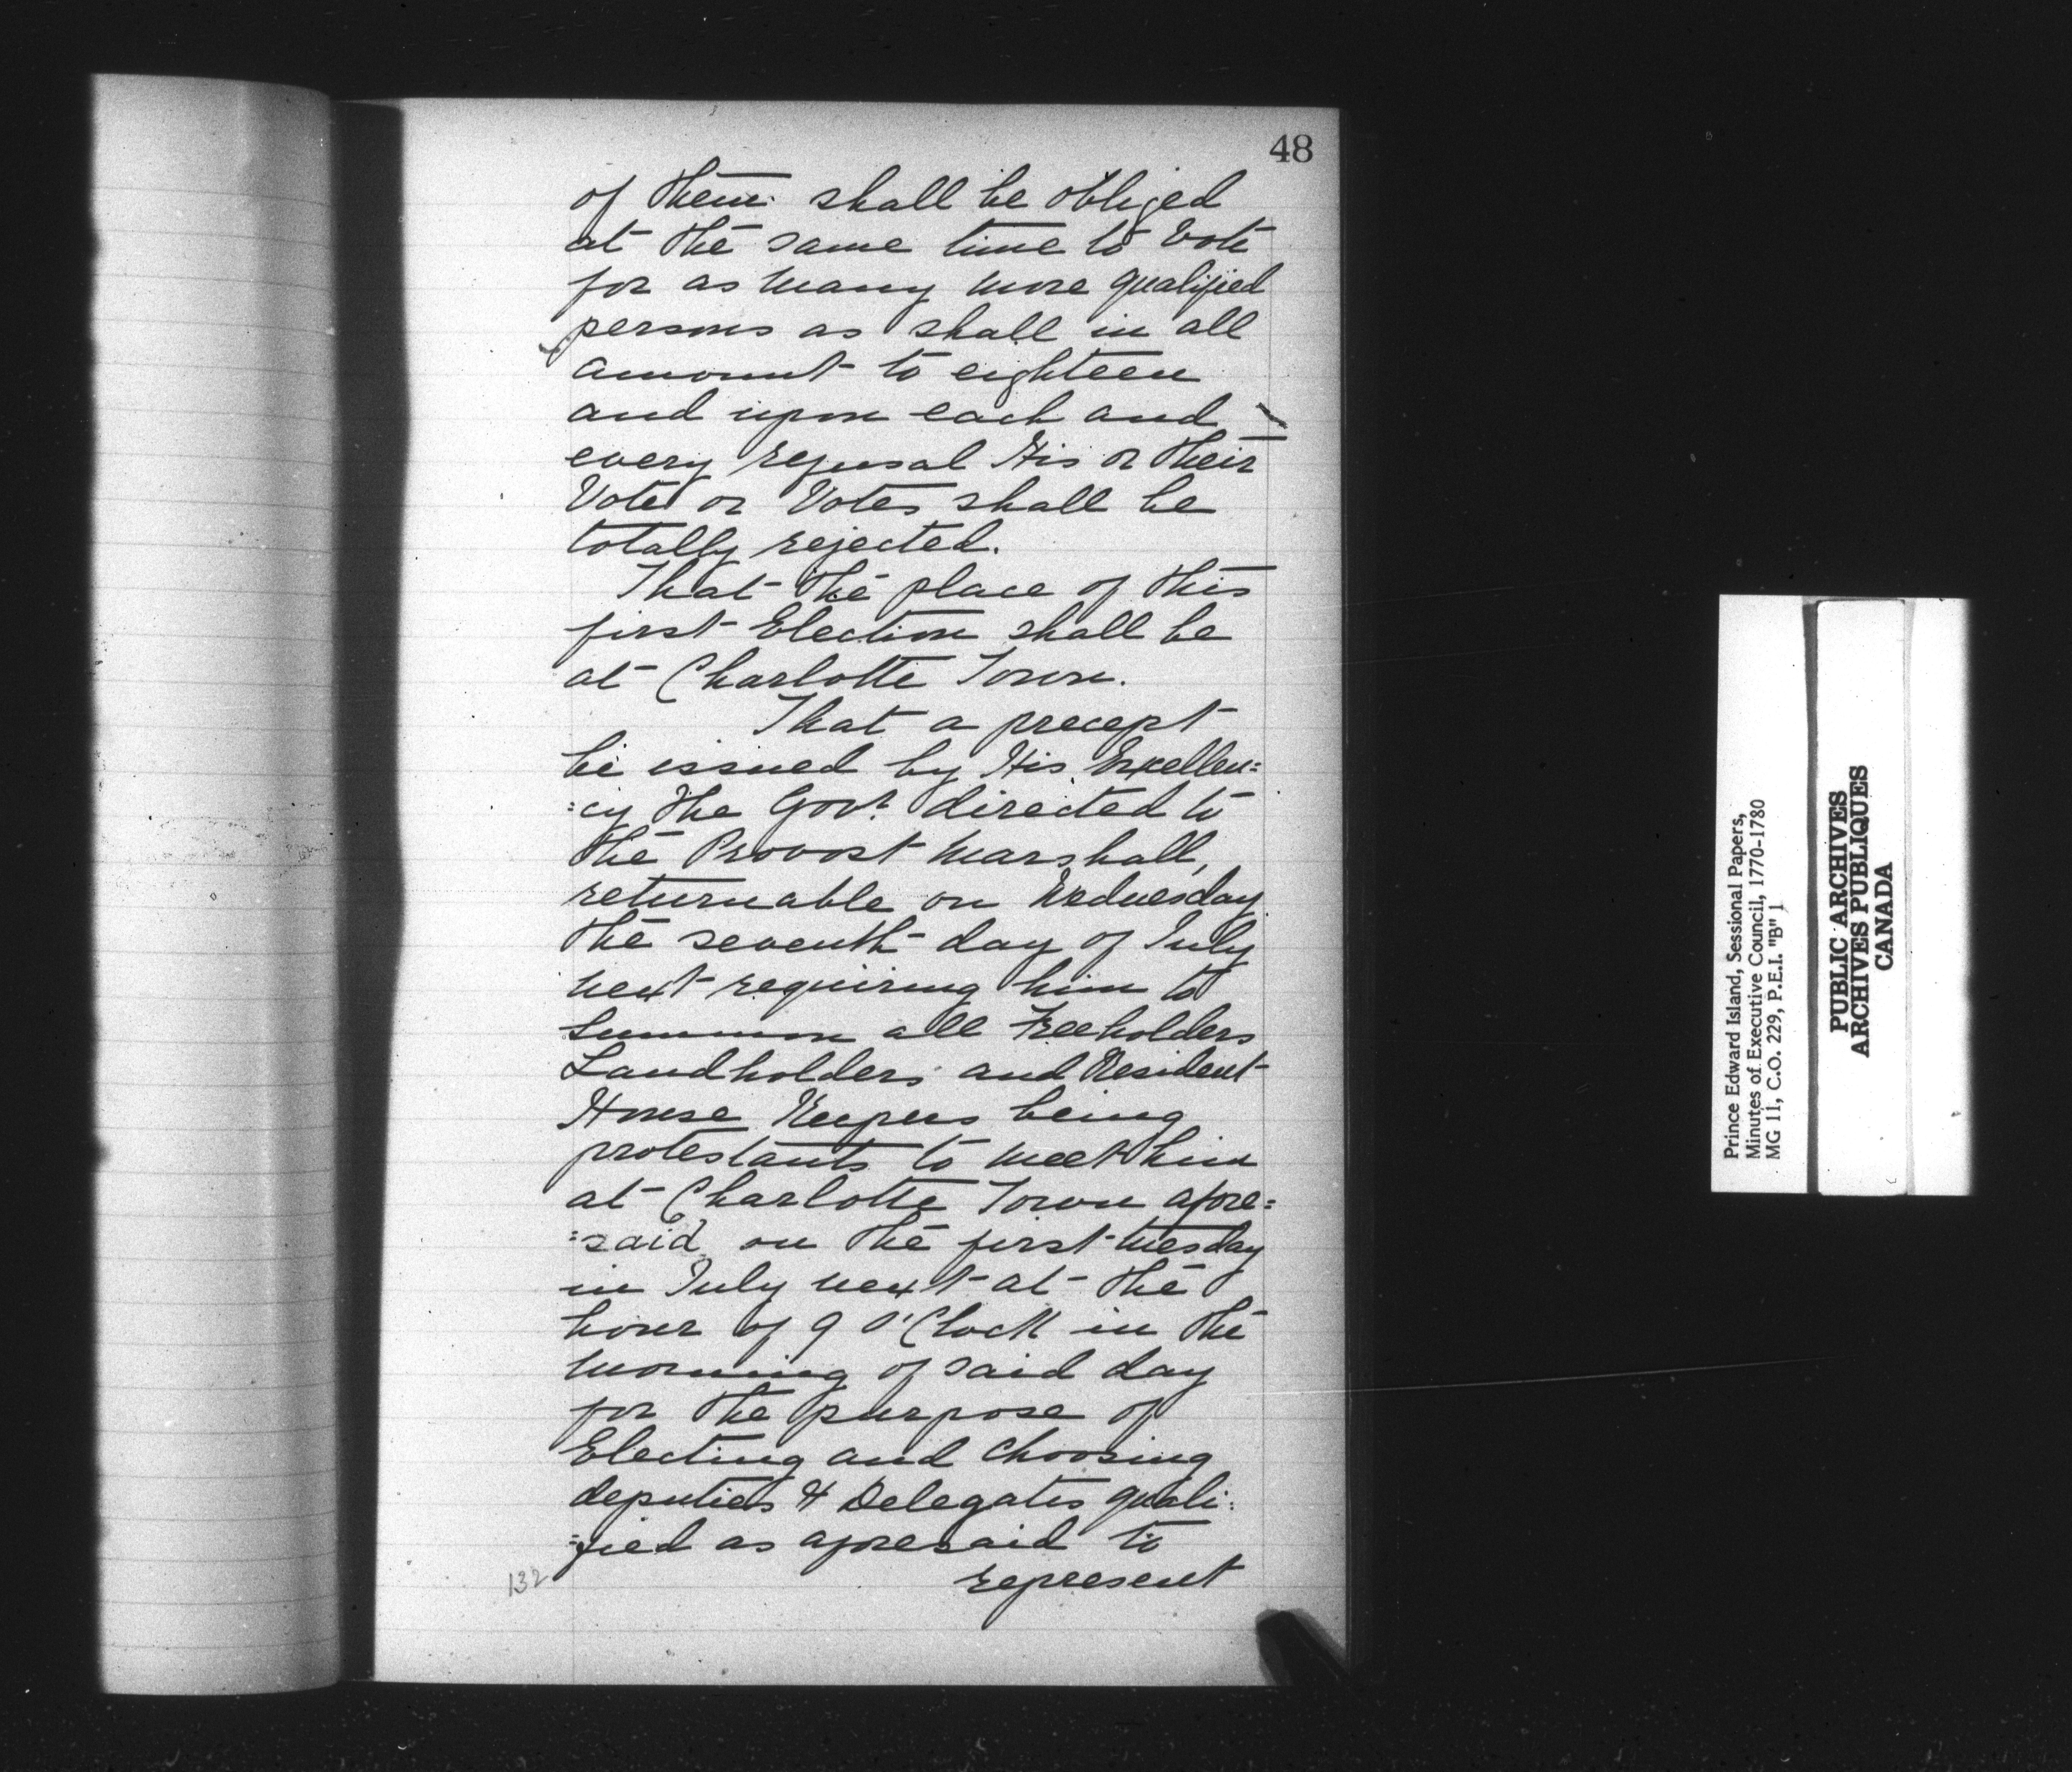 48
of them shall be obliged
at the same time to Vote
for as many more qualified
persons as shall in all
amount to eighteen
and upon each and
every refusal His or their
Vote or Votes shall be
totally rejected.
That the place of this
first Election shall be
at Charlotte Town.
That a precept
be issued by His Excellen=
=cy the Govr. directed to
the Provost Marshall,
returnable on Wednesday
the seventh day of July
next requiring him to
Summon all Freeholders
Landholders and Resident
House Keepers being
protestants to meet him
at Charlotte Town afore=
=said on the first tuesday
in July next at the
hour of 9 O'Clock in the
morning of said day
for the purpose of
Electing and choosing
deputies & Delegates quali=
=fied as aforesaid to
represent
132
Prince Edward Island, Sessional Papers,
Minutes of Executive Council, 1770-1780
MG 11, C.O. 229, P.E.I. "B" 1
PUBLIC ARCHIVES
ARCHIVES PUBLIQUES
CANADA